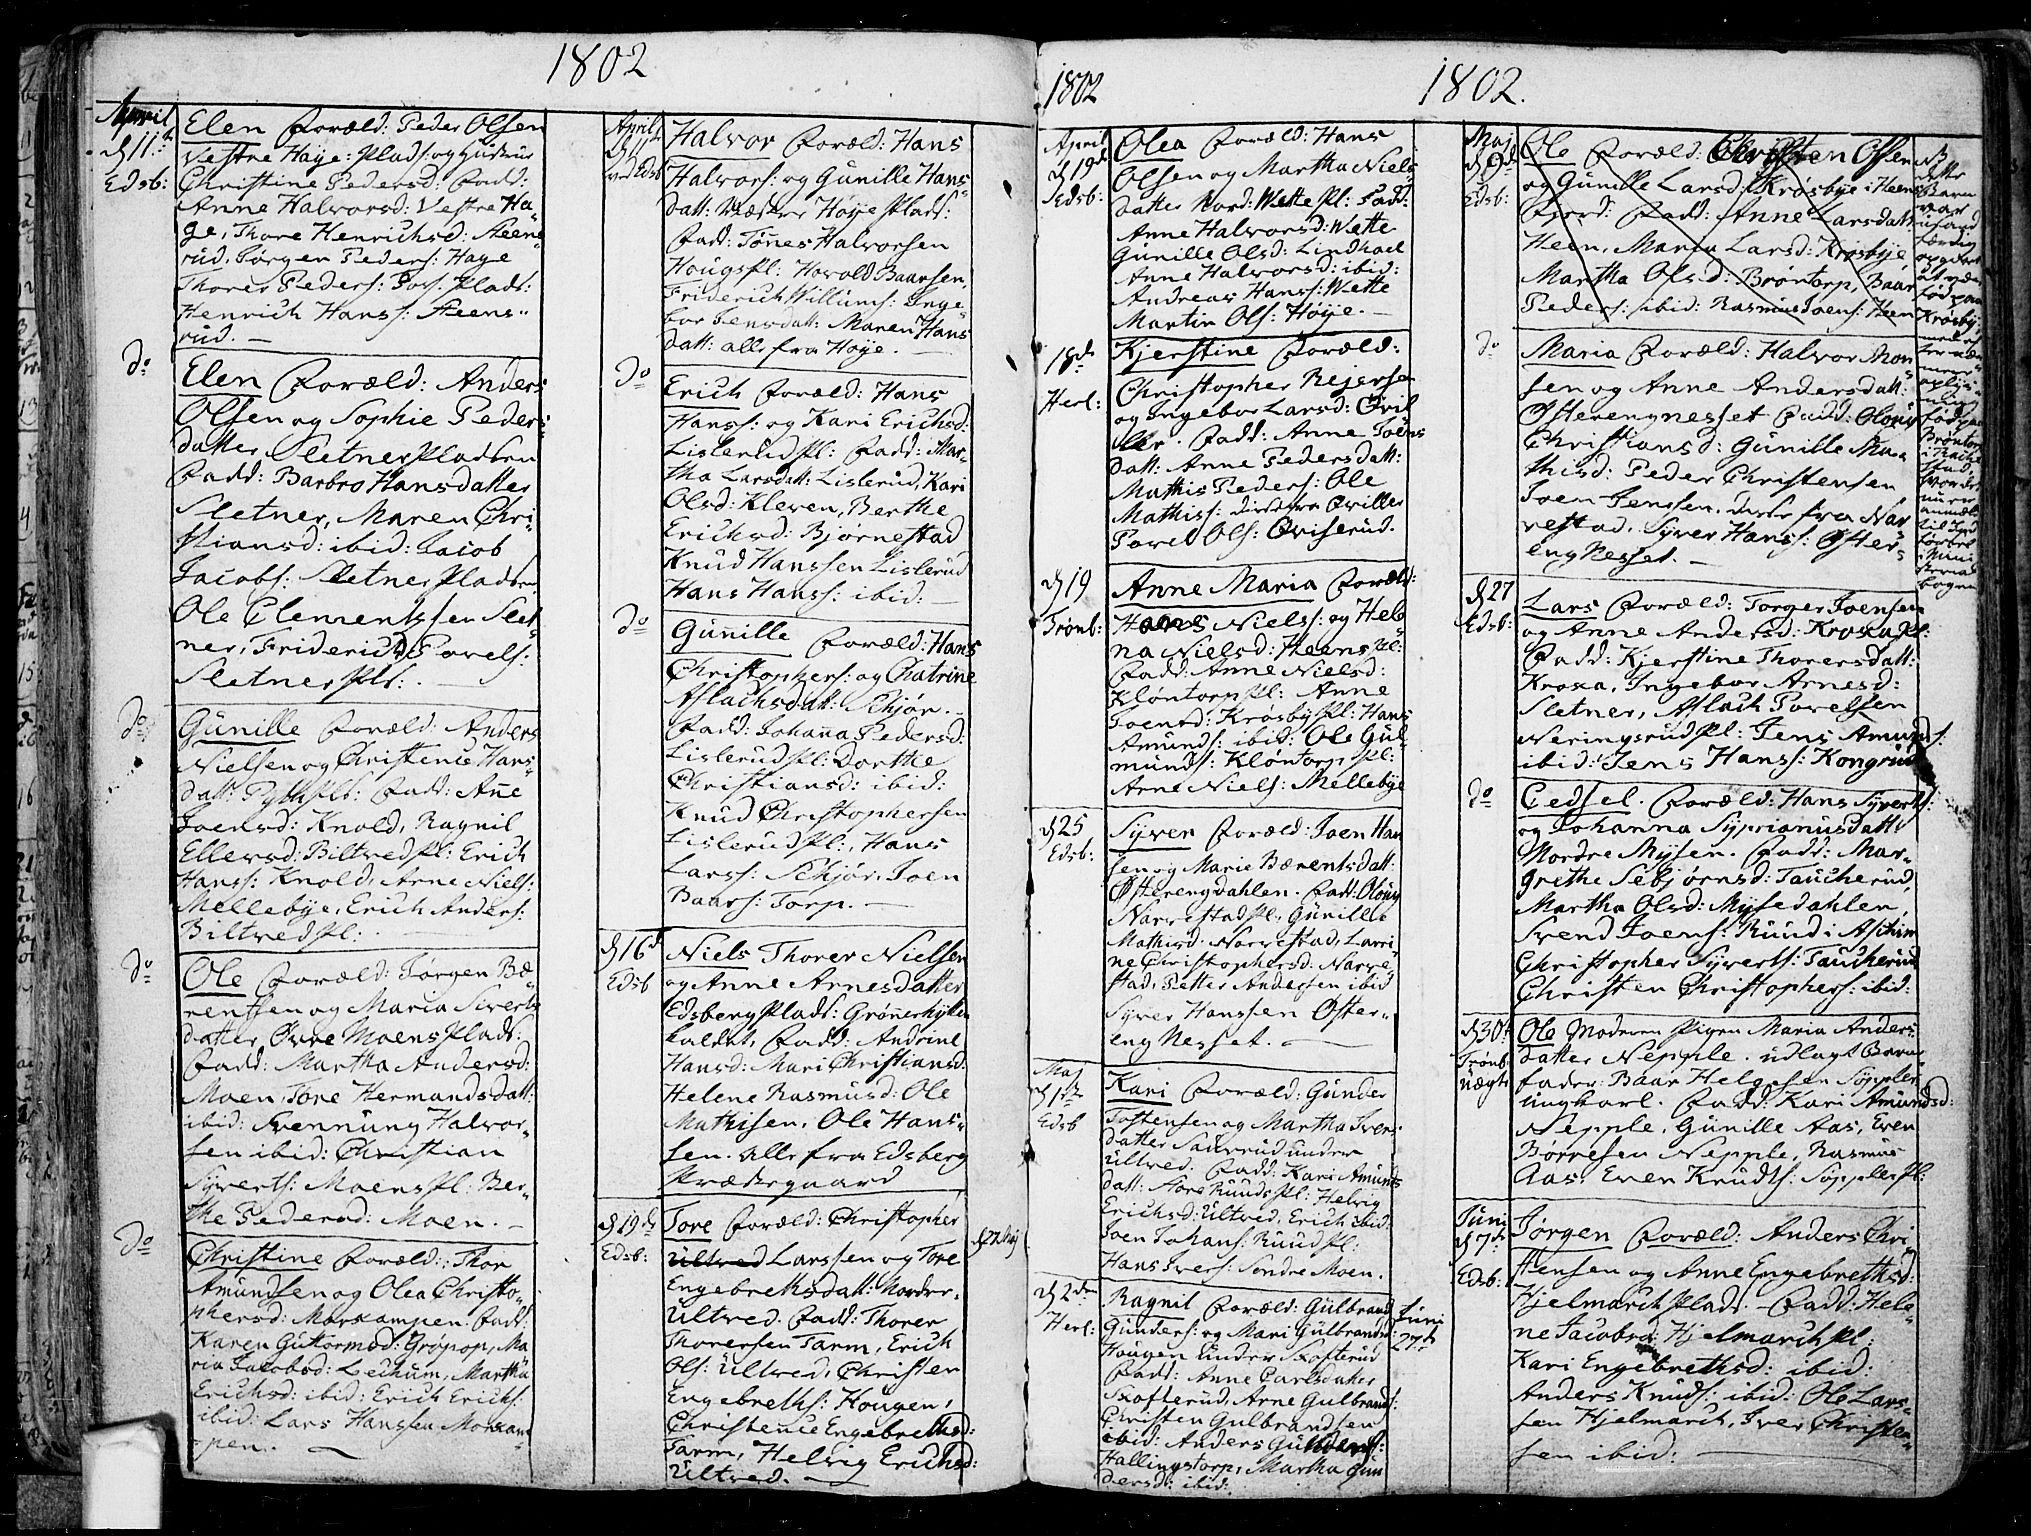 1802
April
d 11te
Edsb:
Elen Foræld: Peder Olsen
Vestre Høye: Plads: og Hustrue
Christine Pedersd: Fadd:
Anne Halvorsd: Vestre Hø-
ye, Thore Henrichsd: Steens-
rud, Jørgen Peders: Høye
Thorer Peders: Plads:
Henrich Hans: Steens-
rud. —
do
Elen Foræld: Anders
Olsen og Sophie Peders-
datter, Sletner Pladsen
Fadd: Barbro Hansdatter
Sletner, Maren Chri-
stiansd: ibid: Jacob
Jacobs: Sletner Pladsen
Ole Clementssen Slet-
ner, Friderich Povels:
Sletner Pls: —
do
Gunille Foræld: Anders
Nielsen og Christence Hans-
datt: Fadd: Ane
Joensd: Knold, Ragnil
Ellersd: Biltvedpl: Erich
Hans: Knold, Arne Niels:
Mellebye, Erich Anders:
Biltvedpl:
do
Ole Foræld: Jørgen Bæ-
rentsen og Maria Siverts
datter, Øvre Moens Plads:
Fadd: Martha Andersd:
Moen, Tore Hermandsdatt:
ibid: Svennung Halvor-
sen ibid: Christian
Syverts: Moenspl: Ber-
the Pedersd: Moen. —
do
Christine Foræld: Thor
Amundsen og Olea Christo-
phersd: Morkampen. Fadd:
Karen Guttormsd: Grøpop, Ma
ria Jacobsd: Lechum, Martha
Erichsd: ibid: Erich Erichs:
ibid: Lars Hanssen Morkam-
pen. —
April
d 11te
ved Edsb
Halvor Foræld: Hans
Halvors: og Gunille Hans-
datt: Høye Plads:
Fadd: Tønes Halvorsen
Hougspl: Havold Baarsen,
Friderich Willums: Inge-
bor Jensdatt: Maren Hans
datt: alle fra Høye. —
do
Erich Foræld: Hans
Hans: og Kari Erichsd:
Lislerud Pl: Fadd: Mar-
tha Larsdatt: Lislerud, Kari
Olsd: Kleven, Berthe
Erichsd: Bjørnestad
Knud Hanssen Lislerud
Hans Hans: ibid: —
do
Gunille Foræld: Hans
Christophers: og Chatrine
Aslachsdatt: Schjør. —
Fadd: Johana Pedersd:
Lislerudpl: Dorthe
Christiansd: ibid:
Knud Christophersen
Lislerudpl:, Hans
Lars: Schjør, Joen
Baars: Torp. —
d 16d
Edsb
Niels Thorer Nielsen
og Anne Arnesdatter
Edsberg Plads: Grønerhytten
kaldet, Fadd: Andrine
Hansd: Mari Christiansd:
Helene Rasmusd: Ole
Mathisen, Ole Hans-
sen. alle fra Edsberg
Prædsegaard
d 19de
Edsb:
Tore Foræld: Christopher
Ultved Larssen og Tore
Engebrethsdatt: Nordre-
Ultved. Fadd: Thorer
Thoresen Tarm, Erich
Ols: Ultved, Christen
Engebreths: Hougen,
Christence Engebrethsd:
Tarm, Helvig Erichsd:
Ultved. —
d 27 Maj
1802
1802.
April
d 19d
Edsb:
Olea Foræld: Hans
Olsen og Martha Niels-
datter Nord: Wette Pl: Fadd:
Anne Halvorsd: Wette
Gunille Olsd: Lindhoel
Anne Halvorsd: ibid:
Andreas Hans: Wette
Martin Ols: Høye. —
18de
Herl:
Kjerstine Foræld:
Christopher Rejersen
og Ingebor Larsd: Qvil
ler. Fadd: Anne Joens
datt: Anne Pedersdatt:
Mathis Peders: Ole
Mathis: disse fra Qviller
Povel Ols: Qviserud.
d 19
Trønb:
Anne Maria Foræld:
Hans Niels: og Hele
na Nielsd: Heens Pl:
Fadd: Anne Nielsd:
Kløntorpspl: Anne
Joensd: Krøsbypl: Hans
Amunds: ibid: Ole Gul-
munds: Kløntorp Pl:
Arne Niels: Mellebye
d 25
Edsb:
Syver Foræld: Joen Han
sen og Marie Bærentsdatt:
Østerengdahlen. Fadd: Olouy
Narvestadpl; Gunille
Mathisd: Narvestad, Larri-
ne Christophersd: Narve-
stad, Petter Andersen ibid
Syver Hanssen Øster-
eng Nesset. —
Maj
d 1ste
Edsb
Kari Foræld: Gunder
Tostensen og Martha Ivers
datter Saxerud under
Ultved. Fadd: Kari Amunds
datt: Store Ruudspl: Helvig
Erichsd: Ultved, Erich ibid:
Joen Johans: Ruudpl:
Hans Ivers: Søndre Moen.
d 2den
Herl:
Ragnil Foræld: Gulbrand
Gunders: og Mari Gulbrandsd:
Hougen under Skofterud
Fadd: Anne Carlsdatter
Skofterud, Arne Gulbrands:
Christen Gulbrandsen
ibid: Anders Gunders:
Hallingstorp, Martha Gun
dersd: ibid:
Juni
27de
Maj
d 9d
Edsb:
Ole Foræld: Christen Olsen
og Gunille Larsd: Krøsbye i Heens
Fjerd: Fadd: Anne Larsdatt
Heen, Maria Larsd: Krosbye
Martha Olsd: Brøntorp, Baar
Peders: ibid: Rasmus Joens: Heen
do
Maria Foræld: Halvor Mon
sen og Anne Andersdatt:
Østerengnesset Fadd: Olouy
Christiansd: Gunille Ma-
thisd: Peder Christensen
Joen Jenssen, disse fra Nar
vestad, Syver Hans: Øster-
eng Nesset. —
NB
dette
Barn
var
født paa
Krøsby
oplys-
ning
født paa
Brøntorp
i Rakke
stad,
hvor det
anmældt
til Ind
førsel
i Mini
sterial
bogen
d 27
Edsb:
Lars Foræld: Torger Joensen
og Anne Andersd: Kroxa Pl:
Fadd: Kjerstine Thorersdatt:
Kroxa, Ingebor Arnesd:
Sletner, Aslach Povelsen
Neringsrudpl: Jens Amunds:
ibid: Jens Hans: Kongrud
do
Gedsel. Foræld: Hans Syverts:
og Johanna Syprianusdatt:
Nordre Mysen. Fadd: Mar-
grethe Sebjørnsd: Taucherud,
Martha Olsd: Mysedahlen,
Svend Joens: Ruud i Aschim
Christopher Syverts: Taucherud
Christen Christophers: ibid:
d 30te
Trønb:
uægte
Ole Moderen Pigen Maria Anders
datter Nepple. udlagt Barne
fader Baar Helgesen Søppler
ungkarl. Fadd: Kari Amundsd:
Nepple, Gunille Aas, Even
Børresen Nepple, Rasmus
Aas, Even Knuds: Søppler pl:
Juni
d 7de
Edsb:
Jørgen Foræld: Anders Chri-
stensen og Anne Engebrethsd:
Hjelmarch Plads — Fadd: Hele
ne Jacobsd: Hjelmarch Pl;
Kari Engebrethsd: ibid:
Anders Knuds: ibid: Ole Lars-
sen Hjelmarch, Iver Christen-
sen ibid: —